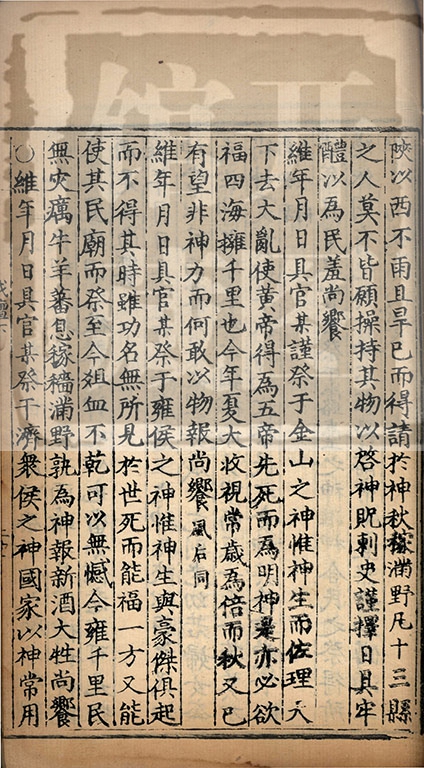 陝以西不雨且旱已而得請於神秋稼滿野凡十三縣
之人莫不皆願操持其物以啓神貺刺史謹擇日具牢
醴以為民羞尚饗
維年月日具官某謹祭于金山之神惟神生而佐理天
下去大亂使黃帝得為五帝先死而為明神是亦必欲
福四海擁千里也今年夏大收視常歲為倍而秋又已
有望非神力而何敢以物報尚饗風后同
維年月日具官某祭于雍侯之神惟神生與豪傑俱起
而不得其時雖功名無所見於世死而能福一方又能
使其民廟而祭至今俎血不乾可以無憾今雍千里民
無灾癘牛羊蕃息稼穡滿野孰為神報新酒大牲尚饗
○維年月日具官某祭于濟衆侯之神國家以神常用